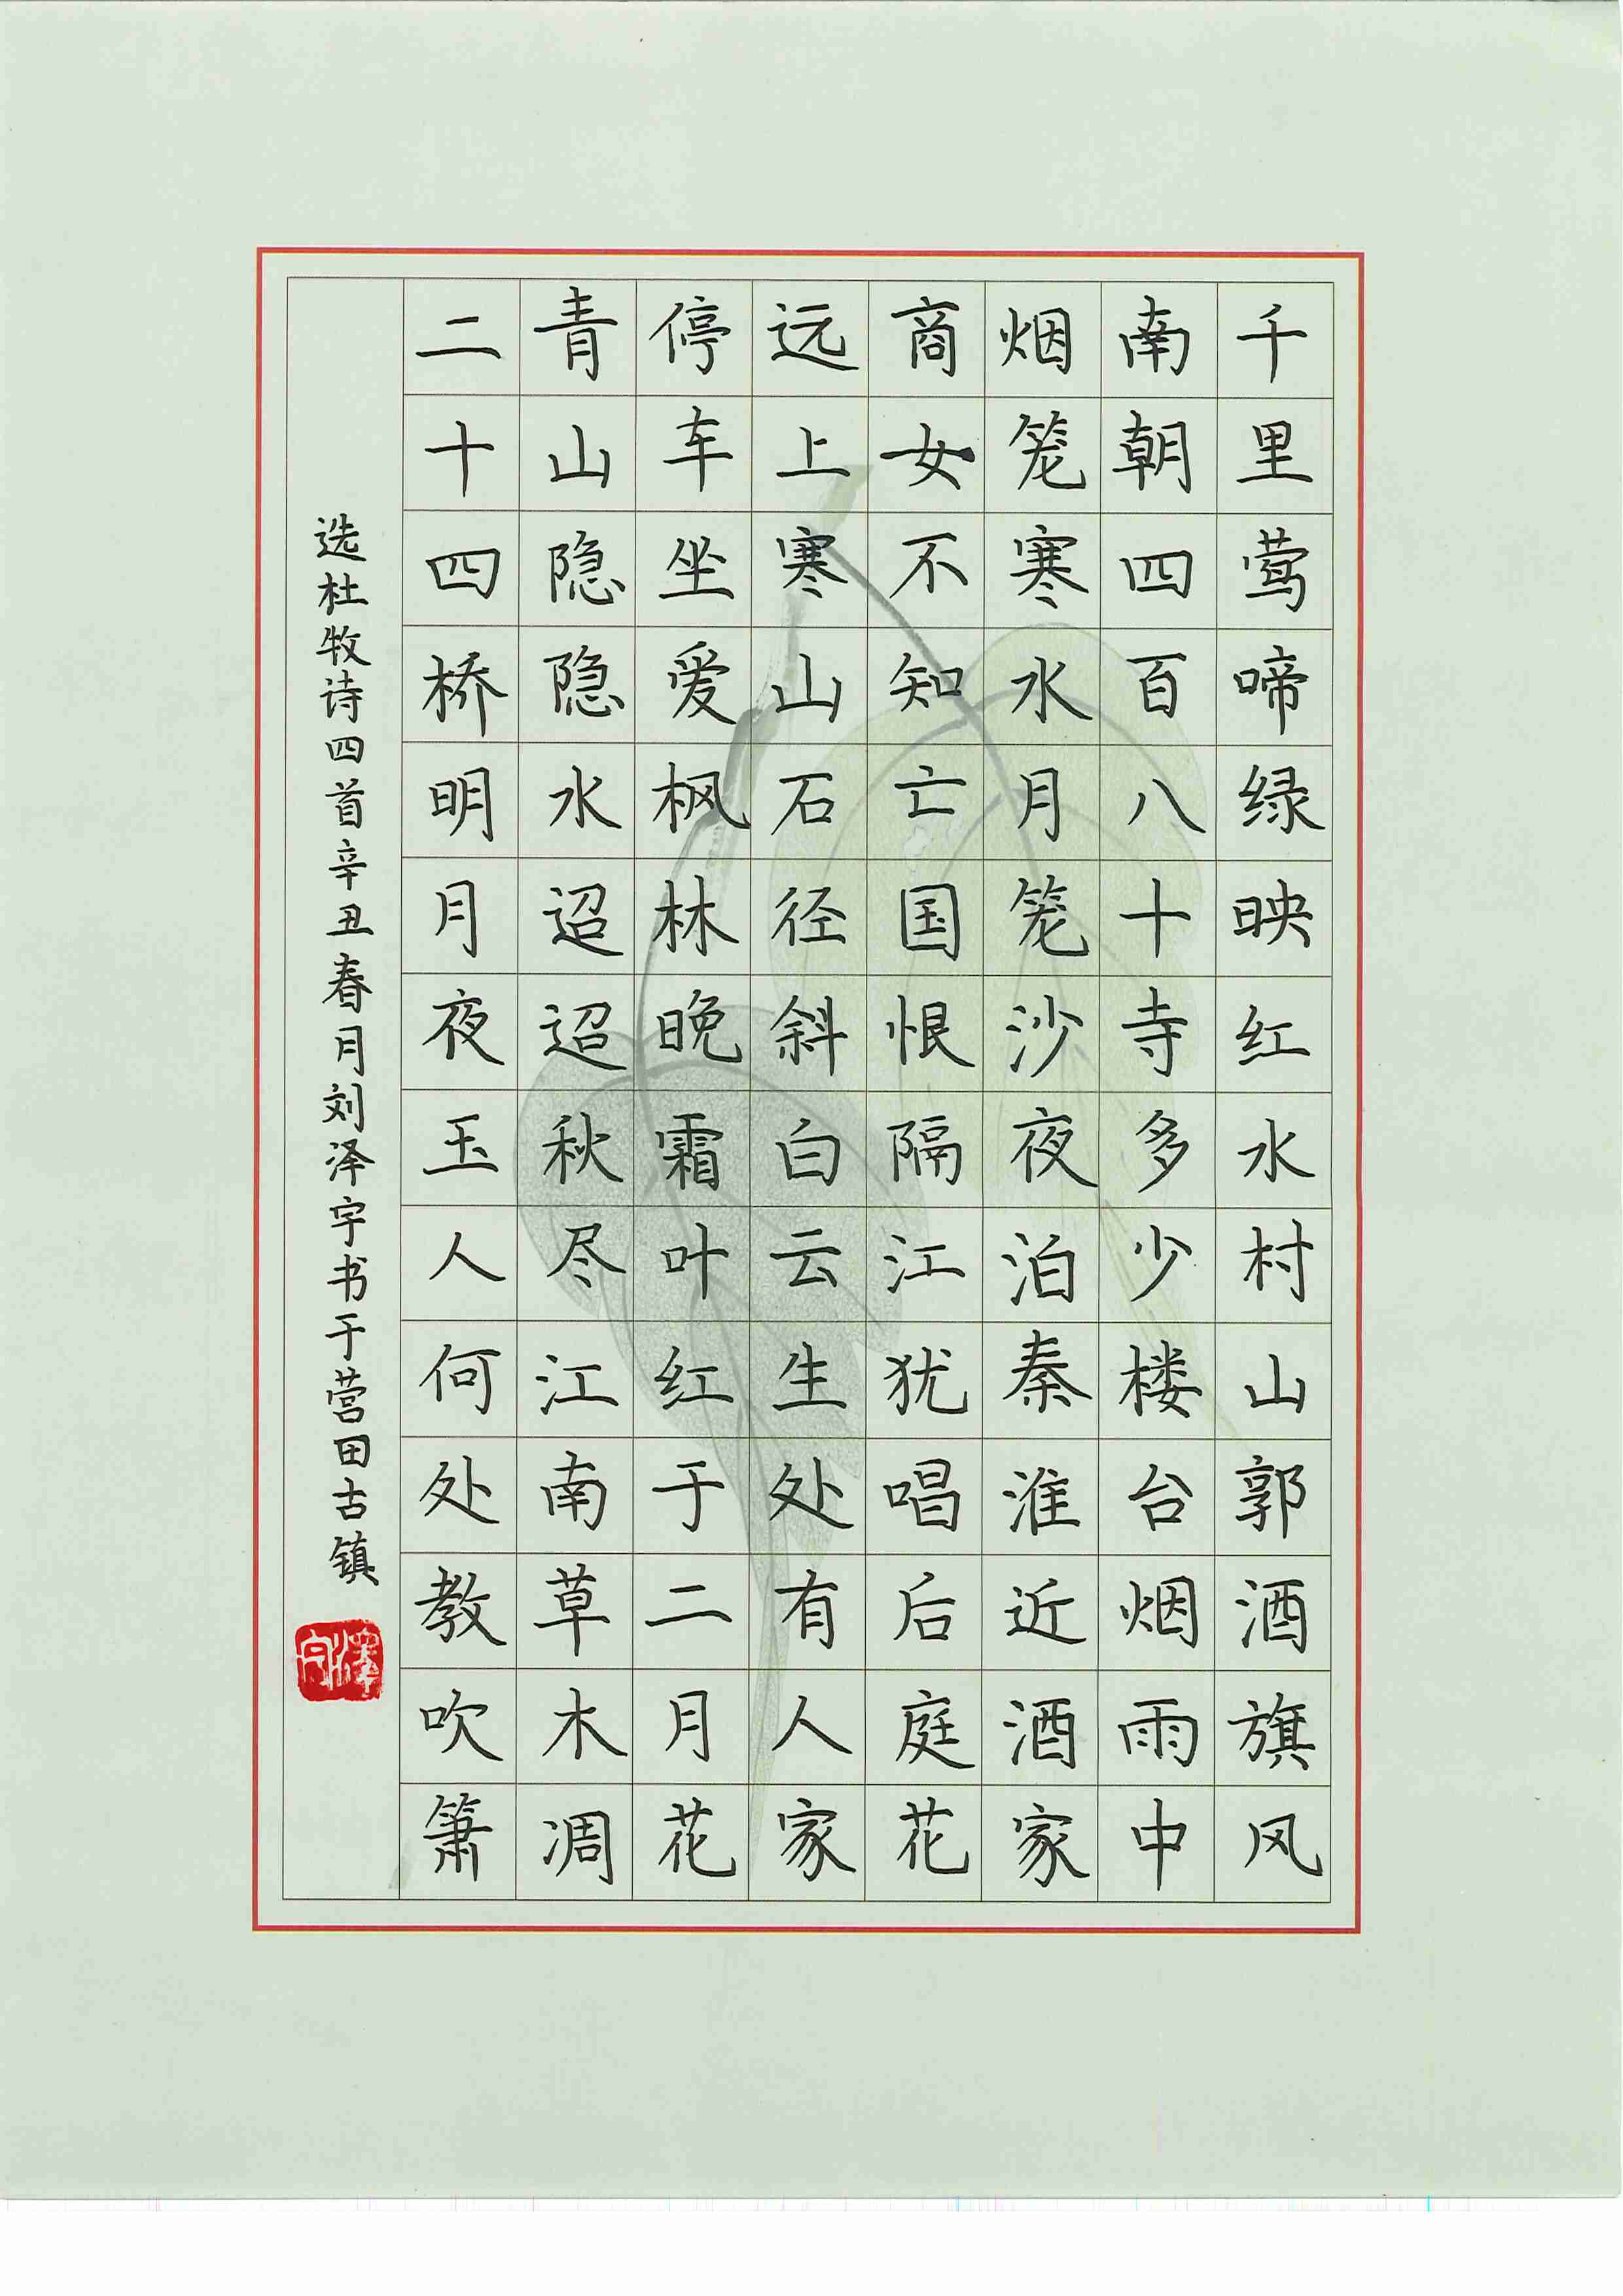 千里莺啼绿映红水村山郭酒旗风
南朝四百八十寺多少楼台烟雨中
烟笼寒水月笼沙夜泊秦淮近酒家
商女不知亡国恨隔江犹唱后庭花
远上寒山石径斜白云生处有人家
停车坐爱枫林晚霜叶红于二月花
青山隐隐水迢迢秋尽江南草木凋
二十四桥明月夜玉人何处教吹箫
选杜牧诗四首辛丑春月刘泽宇书于营田古镇